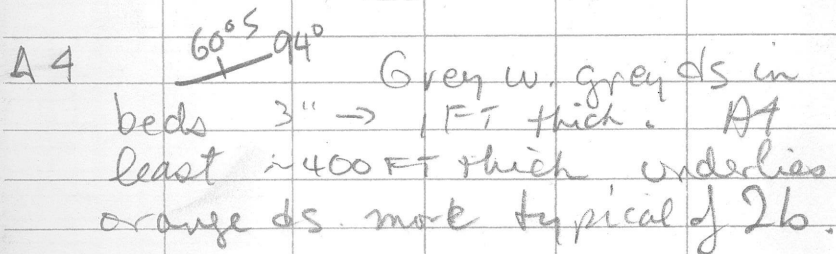 A4 60°S 94° Grey w. grey ds in
beds 3" → 1 FT thick. At
least ~400 FT thick underlies
orange ds. more typical of 2b.